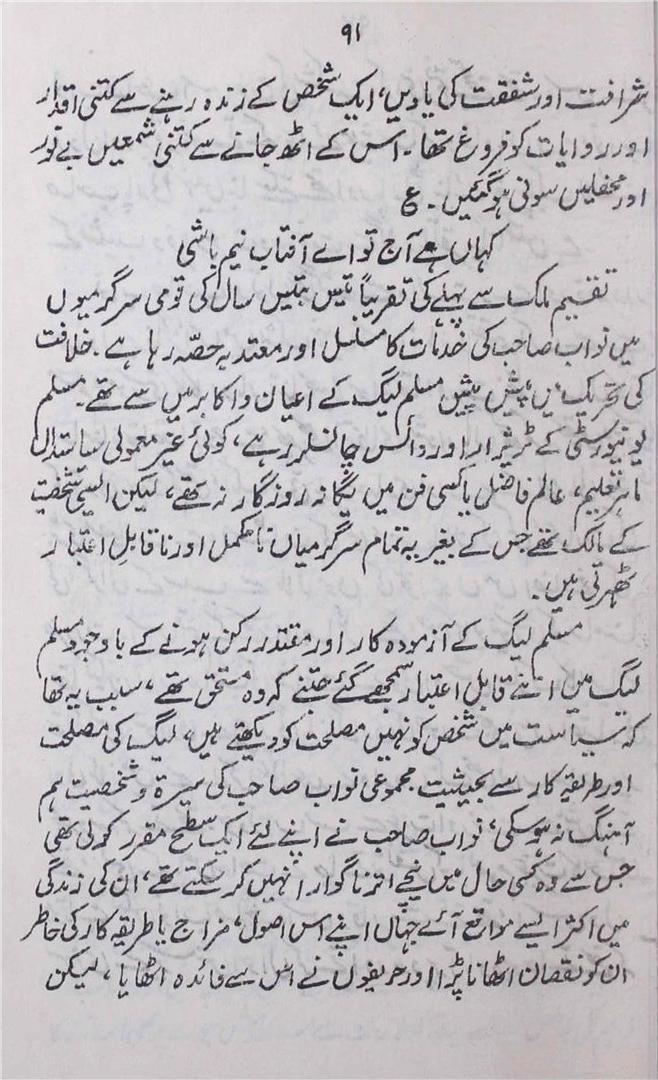 ۹۱
شرافت اور شفقت کی یادیں، ایک شخص کے زندہ رہنے سے کتنی اقدار
اور روایات کو فروغ تھا۔ اس کے اٹھ جانے سے کتنی شمعیں بے نور
اور محفلیں سونی ہو گئیں۔ ع
کہاں ہے آج تو اے آفتاب نیم باشی
تقسیم ملک سے پہلے کی تقریباً تیس بتیس سال کی قومی سرگرمیوں
میں نواب صاحب کی خدمات کا مسلسل اور معتد بہ حصّہ رہا ہے۔ خلافت
کی تحریک میں پیش پیش مسلم لیگ کے اعیان و اکابر میں سے تھے۔ مسلم
یونیورسٹی کے ٹریژرار اور وائس چانسلر رہے، کوئی غیر معمولی سائنسداں
ماہر تعلیم، عالم فاضل یا کسی فن میں یگانہ روزگار نہ تھے، لیکن ایسی شخصیت
کے مالک تھے جس کے بغیر یہ تمام سرگرمیاں نامکمل اور ناقابلِ اعتبار
ٹھہرتی ہیں۔
مسلم لیگ کے آزمودہ کار اور مقتدر رکن ہونے کے باوجود مسلم
لیگ میں اتنے قابلِ اعتبار سمجھے گئے جتنے کہ وہ مستحق تھے، سبب یہ تھا
کہ سیاست میں شخص کو نہیں مصلحت کو دیکھتے ہیں، لیگ کی مصلحت
اور طریقہ کار سے بحیثیت مجموعی نواب صاحب کی سیرۃ و شخصیت ہم
آہنگ نہ ہو سکی، نواب صاحب نے اپنے لئے ایک سطح مقرر کر لی تھی
جس سے وہ کسی حال میں نیچے اترنا گوارا نہیں کر سکتے تھے، ان کی زندگی
میں اکثر ایسے مواقع آئے جہاں اپنے اس اصول، مزاج یا طریقہ کار کی خاطر
ان کو نقصان اٹھانا پڑا اور حریفوں نے اس سے فائدہ اٹھایا، لیکن